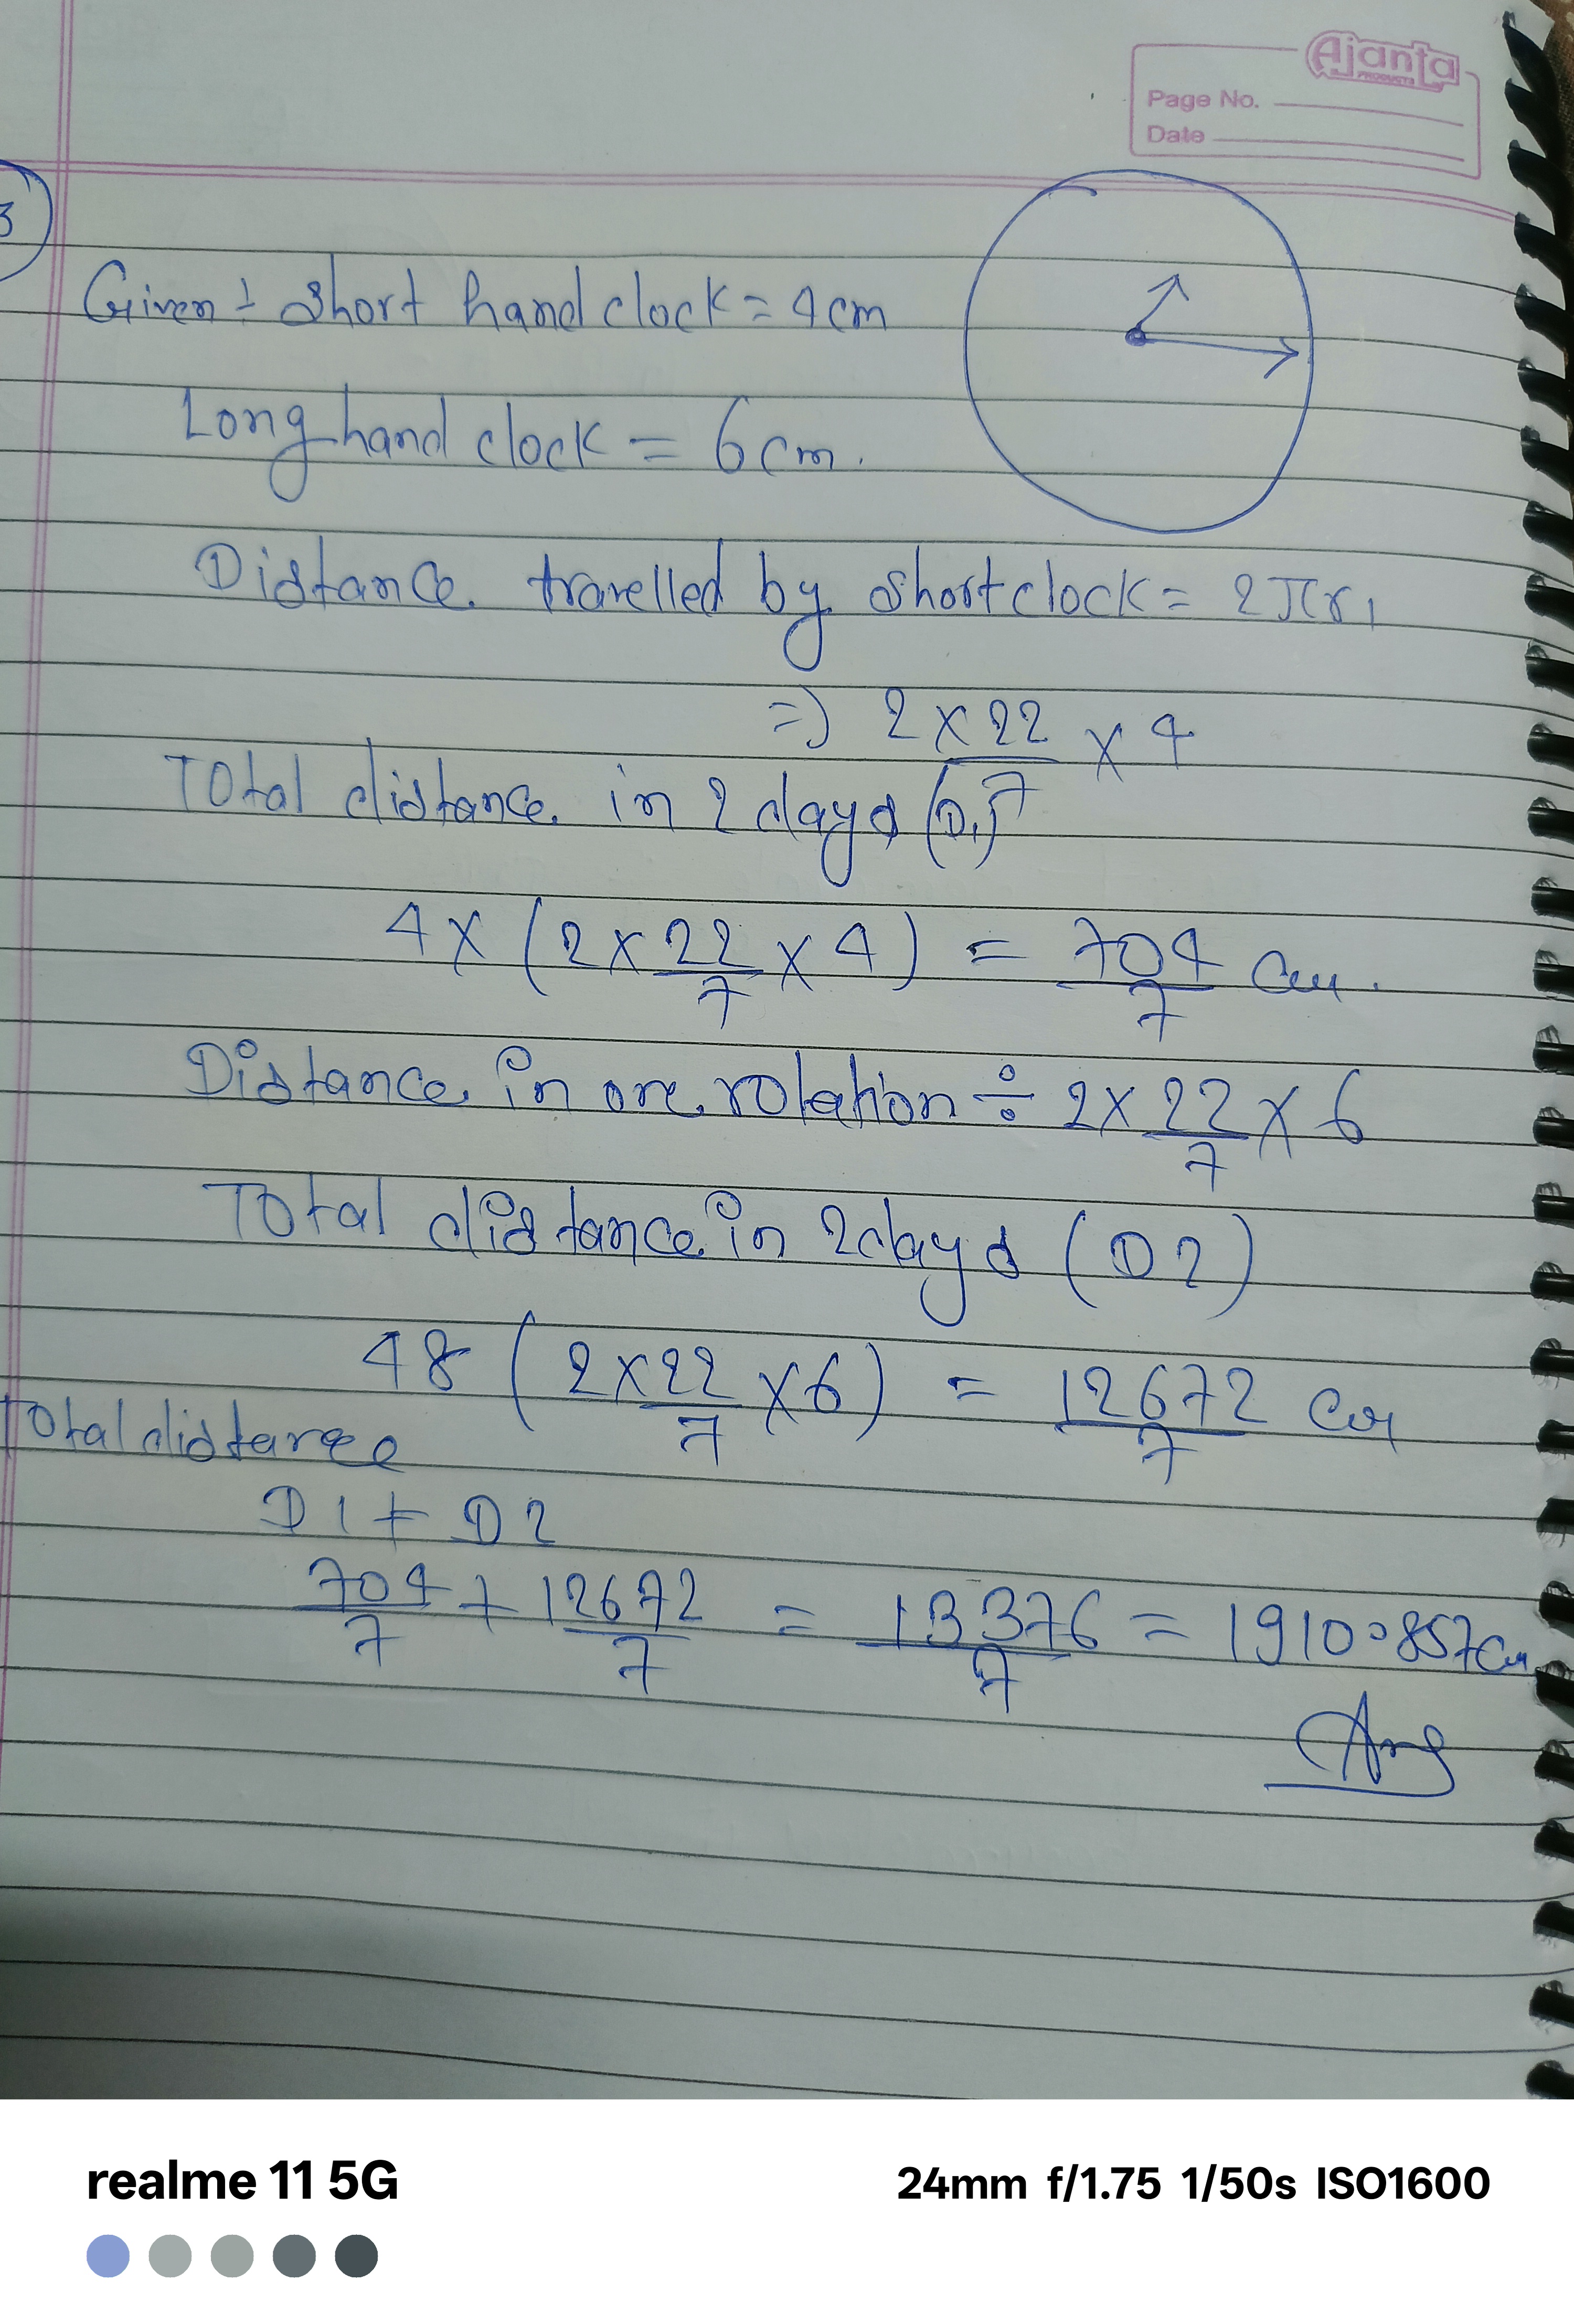 Ajanta
PRODUCTS
Page No.
Date
3
Given ÷ Short hand clock = 4cm
Long hand clock = 6cm.
Distance travelled by short clock = 2πr1
=) 2 × 22/7 × 4
Total distance in 2 days (D1)
4 × (2 × 22/7 × 4) = 704/7 cm.
Distance in one rotation ÷ 2 × 22/7 × 6
Total distance in 2 days (D2)
48 (2 × 22/7 × 6) = 12672/7 cm
Total distance
D1 + D2
704/7 + 12672/7 = 13376/7 = 1910.857cm
Ans
realme 11 5G
24mm f/1.75 1/50s ISO1600